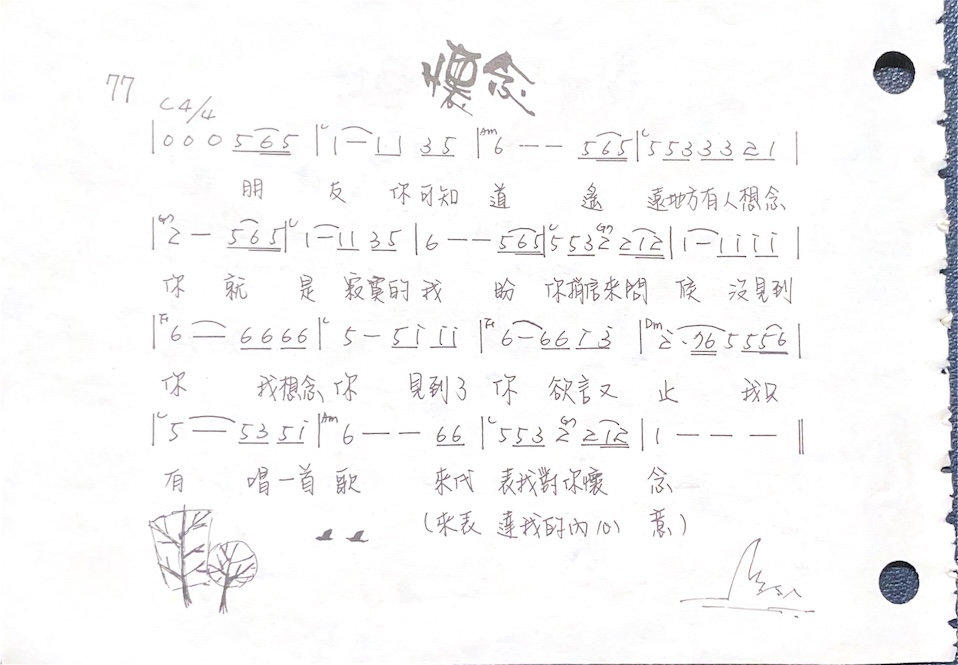 懷念
77
C 4/4
|0 0 0 5 6 5 |C 1 - 1 1 3 5 |Am 6 - - 5 6 5 |C 5 5 3 3 3 2 1 |
朋 友 你可知 道 遙 遠地方有人想念
|G7 2 - 5 6 5 |C 1 - 1 1 3 5 | 6 - - 5 6 5 |C 5 5 3 G7 2 2 1 2 | 1 - 1 1 1 1 |
你 就 是 寂寞的我 盼 你捎信來問 候 沒見到
|F 6 - 6 6 6 6 |C 5 - 5 1 1 1 |F 6 - 6 6 1 3 |Dm 2 · 7 6 5 5 5 6 |
你 我想念你 見到了 你 欲言又 止 我只
|C 5 - 5 3 5 1 |Am 6 - - 6 6 |C 5 5 3 G7 2 2 1 2 | 1 - - - ‖
有 唱一首歌 來代 表我對你懷 念
(來表 達我的內心 意)